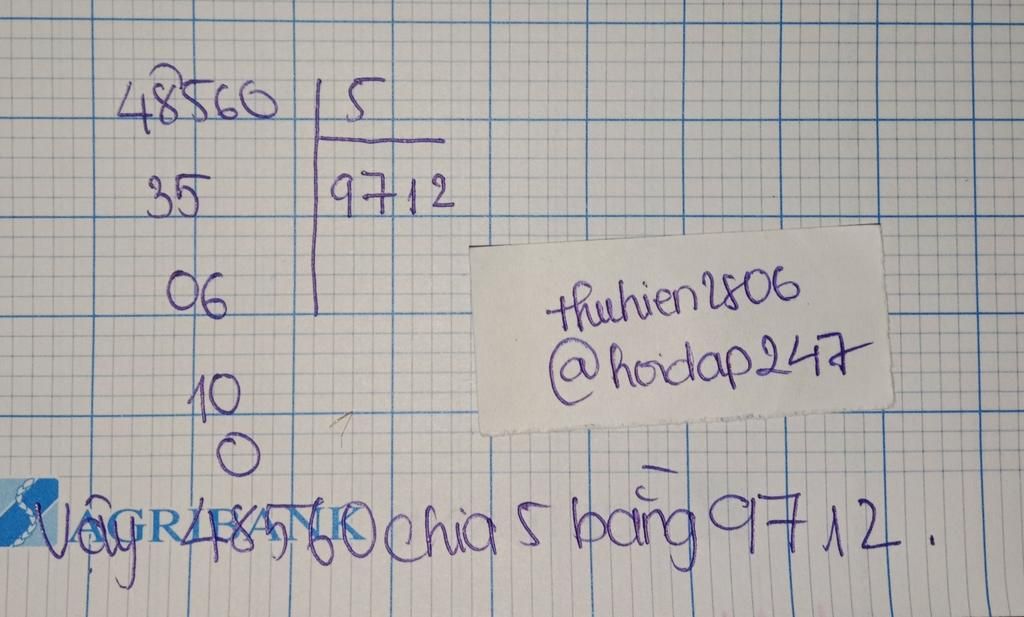 48560 5
35 9712
06
10
0
thuhien2806
@hoidap247
AGRIBANK
Vậy 48560 chia 5 bằng 9712.